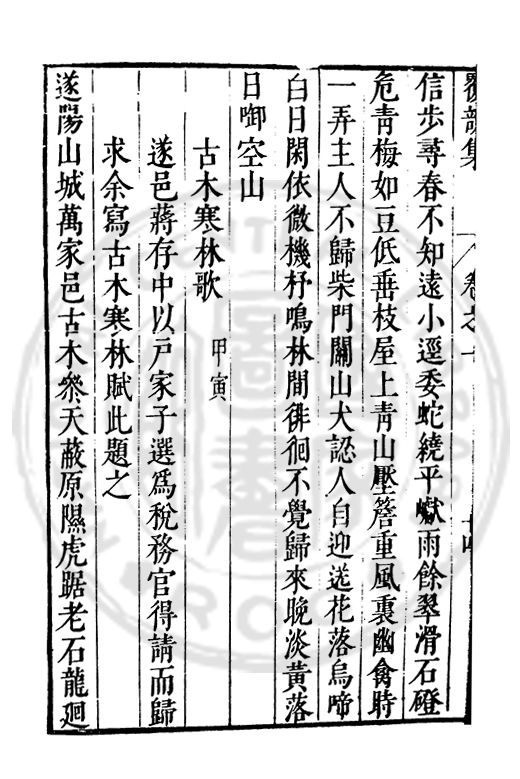 覆瓿集 卷之十 十四
信步尋春不知遠小逕委蛇繞平巘雨餘翠滑石磴
危青梅如豆低垂枝屋上青山壓簷重風裏幽禽時
一弄主人不歸柴門關山犬認人自迎送花落烏啼
白日閑依微機杼鳴林間徘徊不覺歸來晚淡黃落
日啣空山
古木寒林歌 甲寅
遂邑蔣存中以戸家子選爲稅務官得請而歸
求余寫古木寒林賦此題之
遂陽山城萬家邑古木叅天蔽原隰虎踞老石龍廻